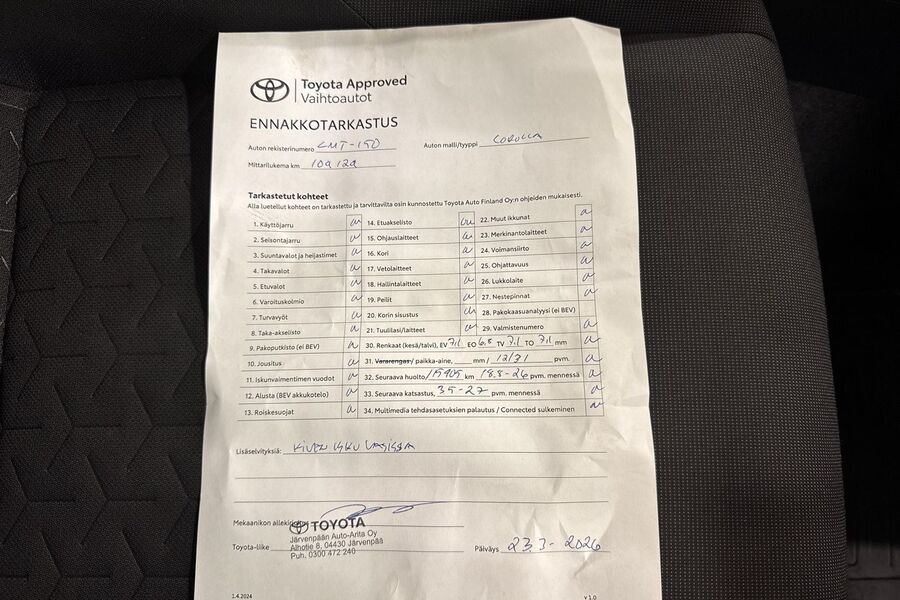 Toyota Approved
Vaihtoautot
ENNAKKOTARKASTUS
Auton rekisterinumero CMT-150 Auton malli/tyyppi COROLLA
Mittarilukema km
Tarkastetut kohteet
Alla luetellut kohteet on tarkastettu ja tarvittavilta osin kunnostettu Toyota Auto Finland Oy:n ohjeiden mukaisesti.
1. Käyttöjarru 14. Etuakselisto 22. Muut ikkunat
2. Seisontajarru 15. Ohjauslaitteet 23. Merkinantolaitteet
3. Suuntavalot ja heijastimet 16. Kori 24. Voimansiirto
4. Takavalot 17. Vetolaitteet 25. Ohjattavuus
5. Etuvalot 18. Hallintalaitteet 26. Lukkolaite
6. Varoituskolmio 19. Peilit 27. Nestepinnat
7. Turvavyöt 20. Korin sisustus 28. Pakokaasuanalyysi (ei BEV)
8. Taka-akselisto 21. Tuulilasi/laitteet 29. Valmistenumero
9. Pakoputkisto (ei BEV) 30. Renkaat (kesä/talvi), EV 7,1 EO 6,8 TV 7,1 TO 7,1 mm
10. Jousitus 31. Vararengas/ paikka-aine, mm / 12/31 pvm.
11. Iskunvaimentimen vuodot 32. Seuraava huolto km 18.8-26 pvm. mennessä
12. Alusta (BEV akkukotelo) 33. Seuraava katsastus, pvm. mennessä
13. Roiskesuojat 34. Multimedia tehdasasetuksien palautus / Connected sulkeminen
Lisäselvityksiä: KIVEN ISKU LASISSA
Mekaanikon
TOYOTA
Järvenpään Auto-Arita Oy
Toyota-liike Alhotie 8, 04430 Järvenpää Päiväys 23.3-2026
Puh. 0300 472 240
1.4.2024 v 1.0